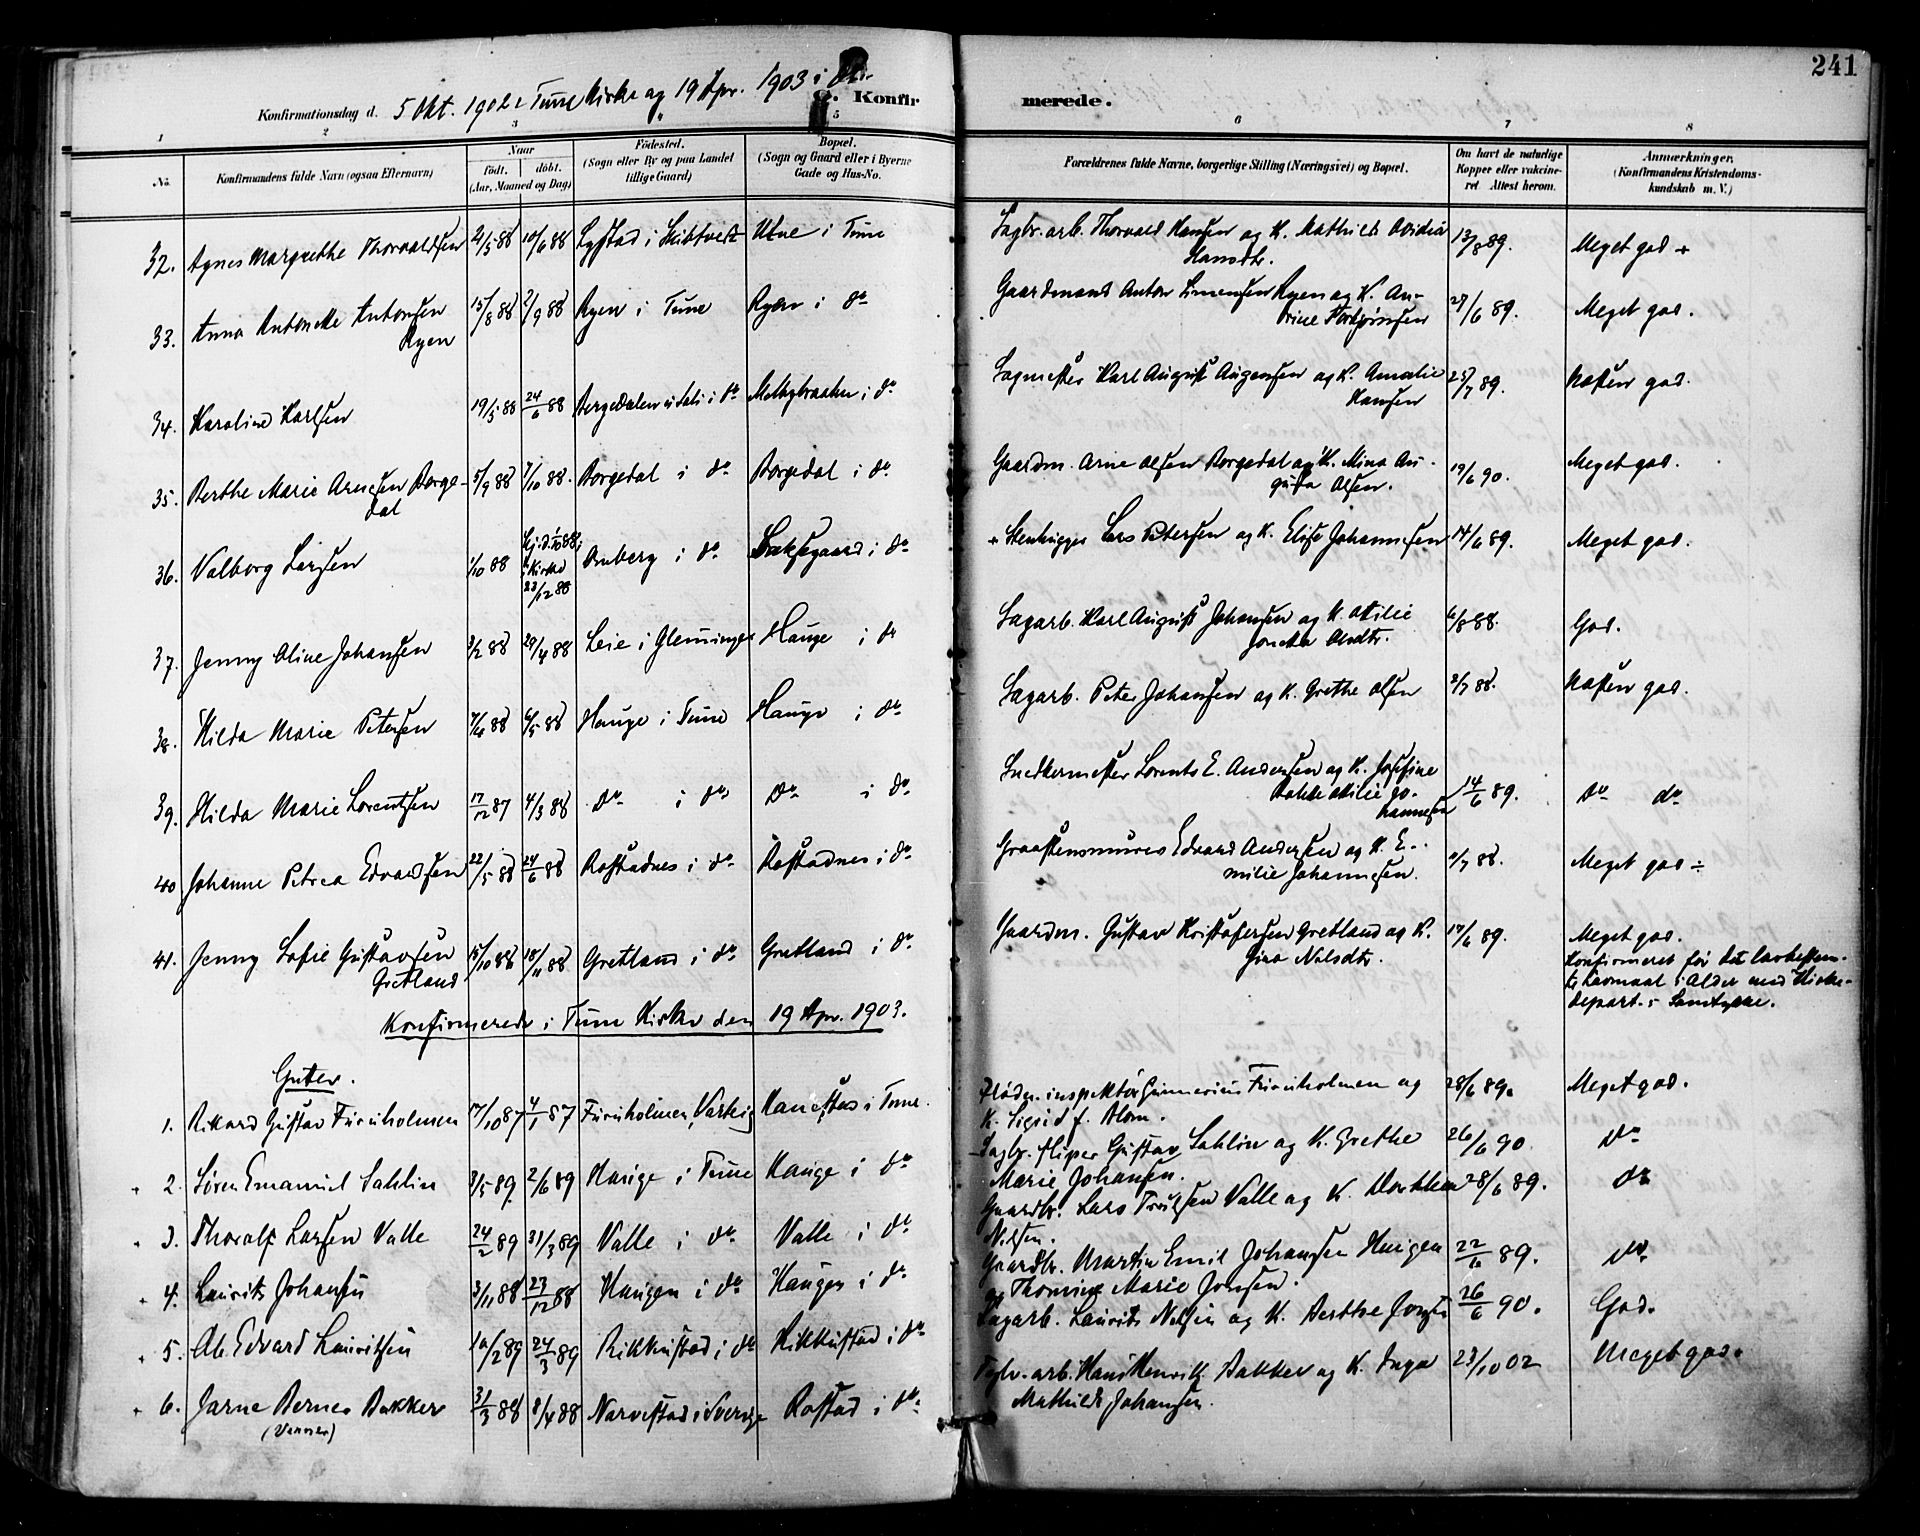 241
Konfirmationsdag d. 5 Okt. 1902 i Tune Kirke og 19 Apr. 1903 i do. C. Konfirmerede.
1 2 3 4 5 6 7 8
No. Konfirmandens fulde Navn (ogsaa Efternavn) Naar født. døbt. (Aar, Maaned og Dag) Fødested. (Sogn eller By og paa Landet tillige Gaard) Bopæl. (Sogn og Gaard eller i Byerne Gade og Hus-No. Forældrenes fulde Navne, borgerlige Stilling (Næringsvei) og Bopæl. Om havt de naturlige Kopper eller vaccineret. Attest herom. Anmærkninger. (Konfirmandens Kristendomskundskab m. V.)
32. Agnes Margrethe Thorvaldsen 21/5 88 10/6 88 i Skibtvedt Utne i Tune Sagbr. arb. Thorvald Hansen og K. Mathilde Ovidia
Hansdtr. 13/8 89. Meget god +
33. Anna Antonette Antonsen
Ryen 15/8 88 2/9 88 Ryen i Tune Ryen i do Gaardmand Anton Simensen Ryen og K. An-
drine Torbjørnsen 27/6 89. Meget god.
34. Karoline Karlsen 19/5 88 24/6 88 i do i do Sagmester Karl August Augensen og K. Amalie
Hansen 25/7 89. Næsten god.
35. Berthe Marie Arnesen Borge-
dal 5/9 88 7/10 88. Borgedal i do Borgedal i do Gaardm. Arne Olsen Borgedal og K. Mina Au-
gusta Olsen. 19/6 90. Meget god.
36. Valborg Larsen 1/10 88 Kirke 23/12 88 i do i do + Stenhugger Lars Petersen og K. Elise Johannesen 14/6 89. Meget god.
37. Jenny Oline Johansen 3/2 88 29/4 88 Leie i Glemminge Hauge i do Sagarb. Karl August Johansen og K. Otilie
6/8 88. God.
38. Hilda Marie Petersen 7/4 88 6/5 88 Hauge i Tune Hauge i do Sagarb. Peter Johansen og K. Grethe Olsen 2/7 88. Næsten god.
39. Hilda Marie Lorentsen 17/12 87 4/3 88 do i do do i do Snedkermester Lorents E. Andersen og K. Josefine
Otilie Jo-
hannesen 14/6 89. do do
40 Johanne Petrea Edvardsen 22/5 88 24/6 88 Rostadnes i do Rostadnes i do Graastensmurer Edvard Andersen og K. E-
milie Johannesen. 2/7 88. Meget god ÷
41. Jenny Sofie Gustavsen
Gretland 15/10 88 18/11 88 Gretland i do Gretland i do Gaardm. Gustav Kristofersen Gretland og K.
Gina Nilsdtr. 17/6 89. Meget god.
Konfirmeret før det lovbestem-
te Normaal i Alder med Kirke-
depart.s Samtykke.
Konfirmerede i Tune Kirke den 19 Apr. 1903.
Gutter.
1. Rikard Gustav Furuholmen 17/10 87 4/1 87 Furuholmen, Varteig i Tune. Fløden.inspektør Gunnerius Furuholmen og
K. Sigrid f. Blom. 28/6 89. Meget god.
2. Søren Emanuel Sahlin 3/5 89. 2/6 89 Hauge i Tune Hauge i do Sagbr. Gustav Sahlin og K. Grethe
Marie Johansen. 26/6 90 do
3. Thoralf Larsen Valle 24/2 89 31/3 89 Valle i do Valle i do Gaardbr. Lars Trulsen Valle og K. Dorthea
Nilsen. 28/6 89. do
4. Laurits Johansen 3/11 88 23/12 88 Haugen i do Haugen i do Gaardbr. Martin Emil Johansen Haugen
og Thomine Marie Jonsen. 22/6 89. do
5. Ole Edvard Lauritsen 10/2 89 24/3 89 Rikkustad i do Rikkustad i do Sagarb. Laurits Nilsen og K. Berthe 26/6 90. God.
6. Jarne Bernes Bakker
(Venner) 31/3 88 8/4 88 Narvestad i Sverige Rostad i do Teglv. arb. Hans Henrik Bakker og K. Inga
Mathilde Johansen. 23/10 02 Meget god.